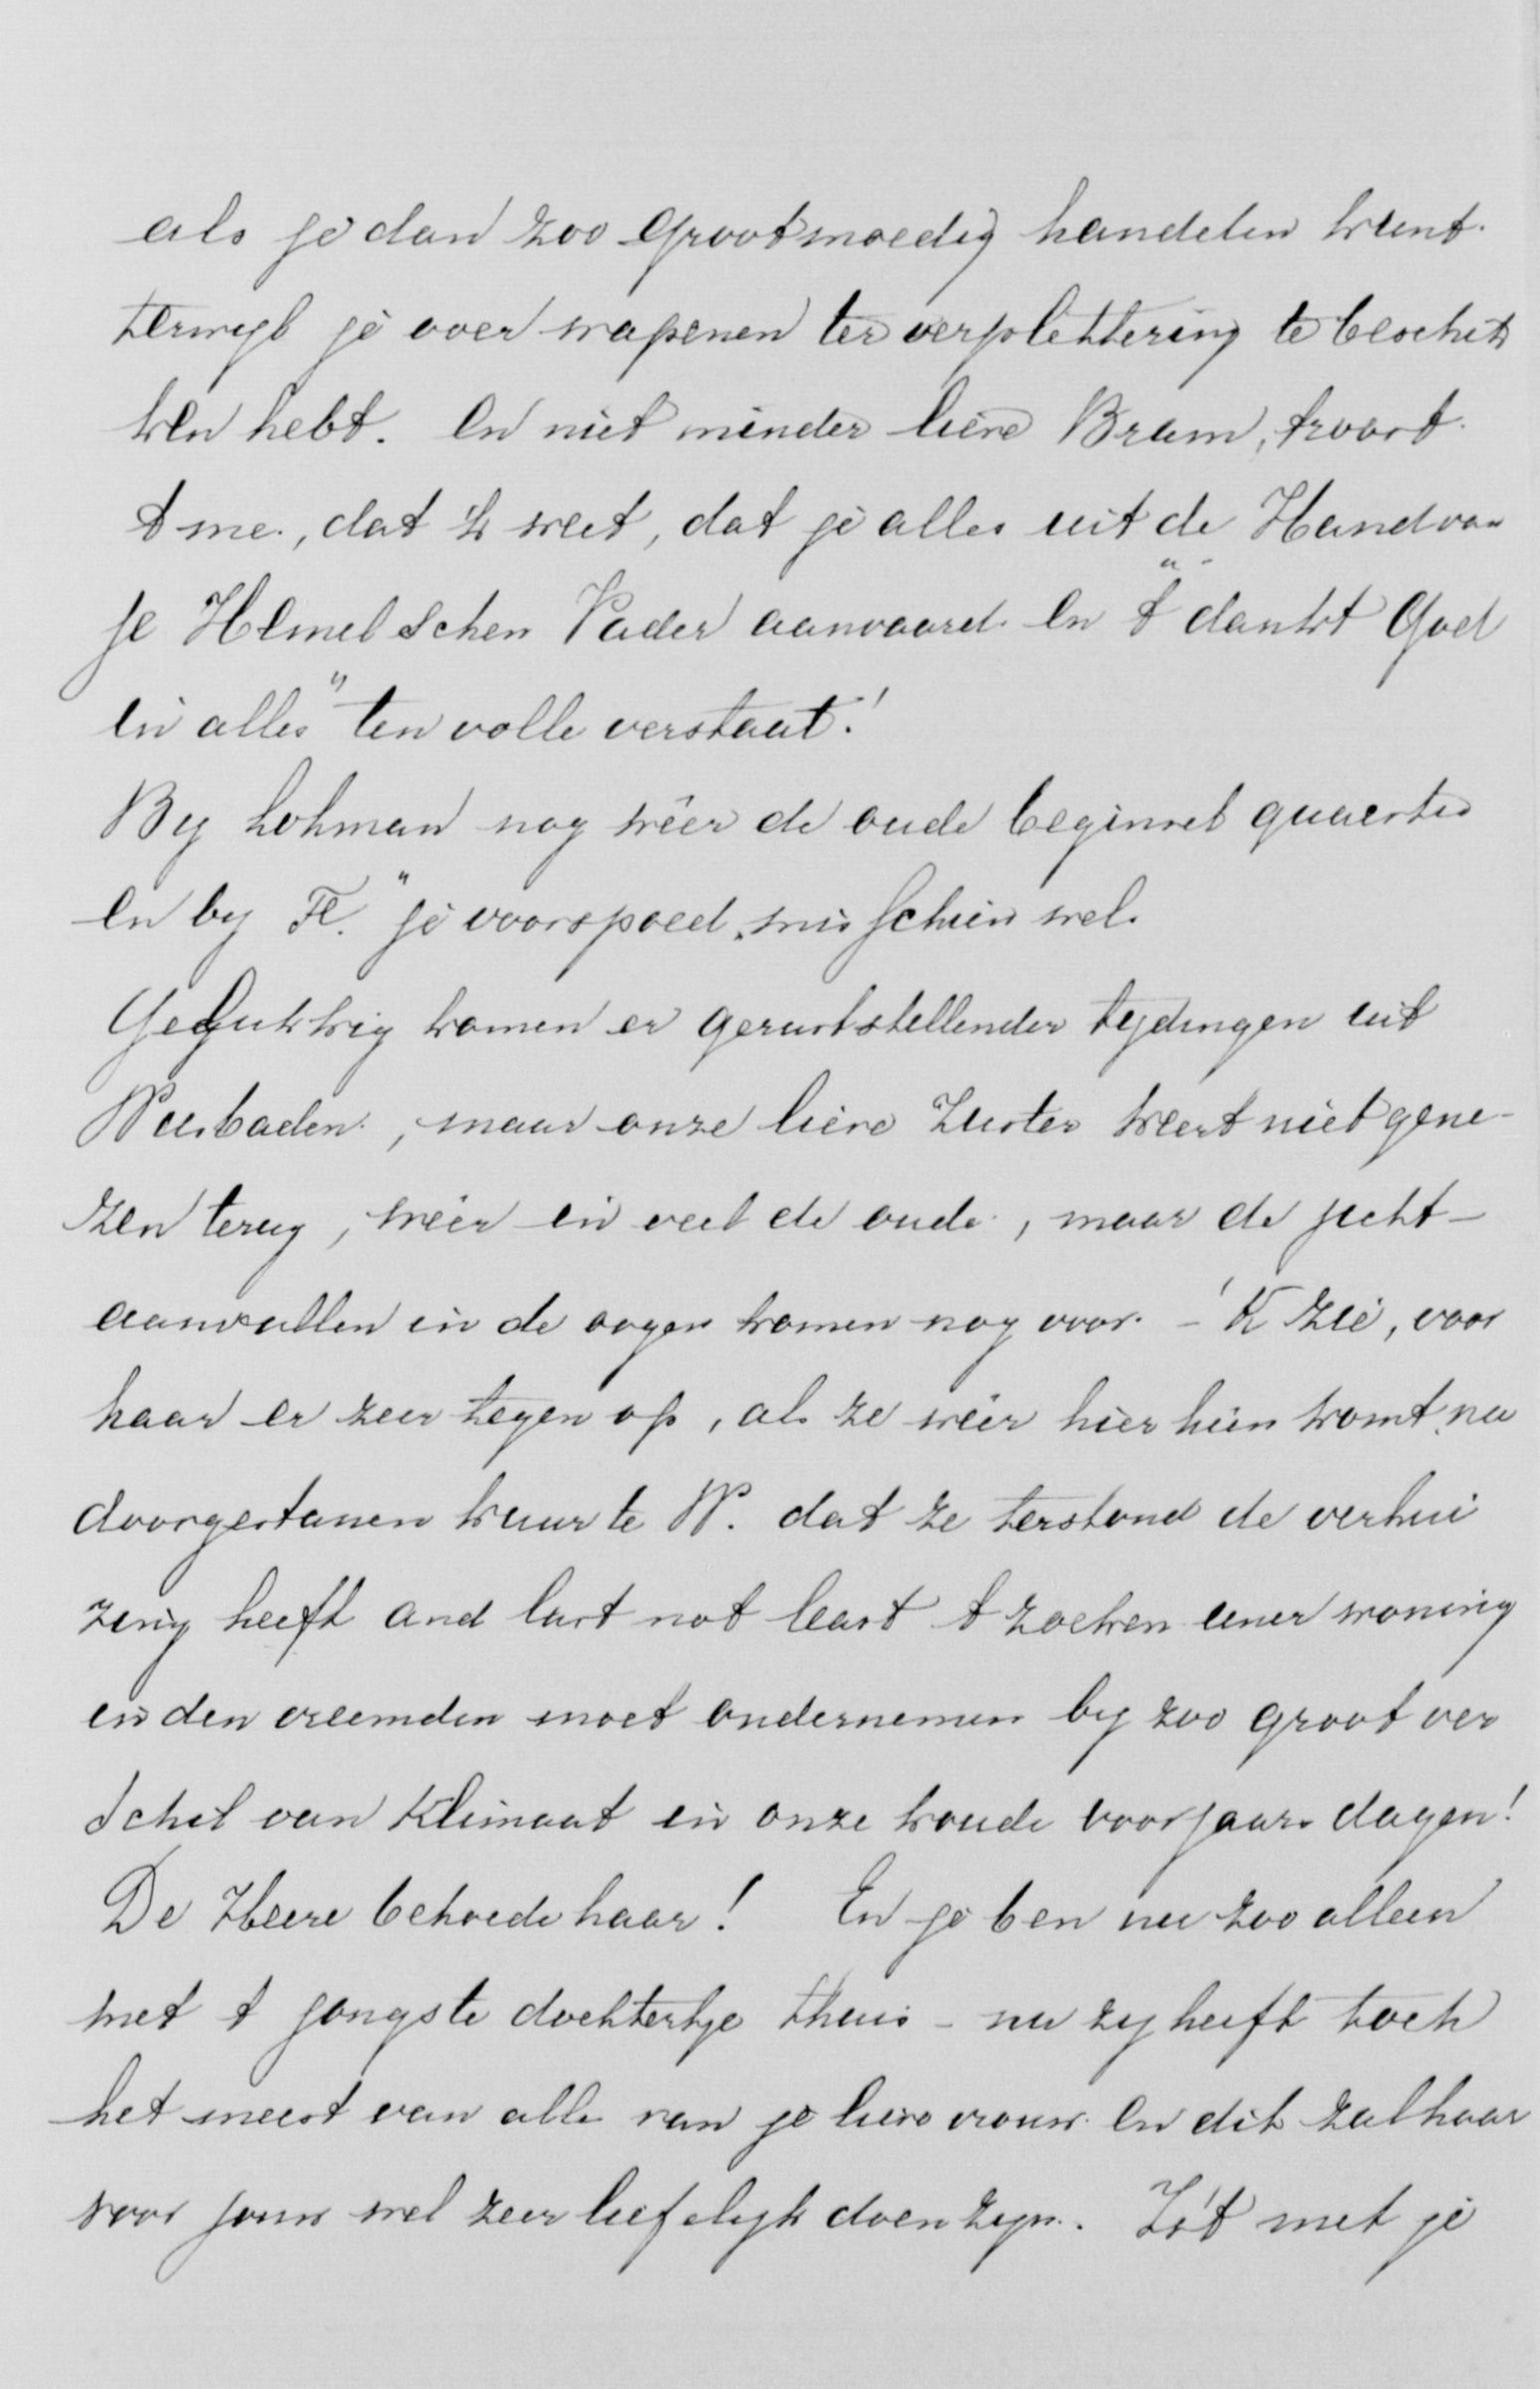 als je dan zoo grootmoedig handelen kunt.
terwyl je over wapenen ter verplettering te beschik
ken hebt. En niet minder lieve Bram, troost
t me, dat k weet, dat je alles uit de Hand van
je Hemelschen Vader aanvaard en t "dankt God
in alles" ten volle verstaat!
By Lohman nog wéér de oude beginsel quaestie
en by H. "je voorspoed misschien wel.
Gelukkig komen er geruststellender tydingen uit
Wiesbaden, maar onze lieve Zuster keert niet gene-
zen terug, wéér in veel de oude, maar de jicht-
aanvallen in de oogen komen nog voor. - 'K zie, voor
haar er zeer tegen op, als ze wéér hier heen komt na
doorgestanen kuur te W. dat ze terstond de verhui
zing heeft and last not least t zoeken eener woning
in den vreemden moet ondernemen by zoo groot ver
schil van klimaat in onze koude voorjaars dagen!
De Heere behoede haar! En je ben nu zoo alleen
met t jongste dochtertje thuis - nu zy heeft toch
het meest van alle van je lieve vrouw en dit zal haar
voor jouw wel zeer liefelyk doen zyn. Is't met je